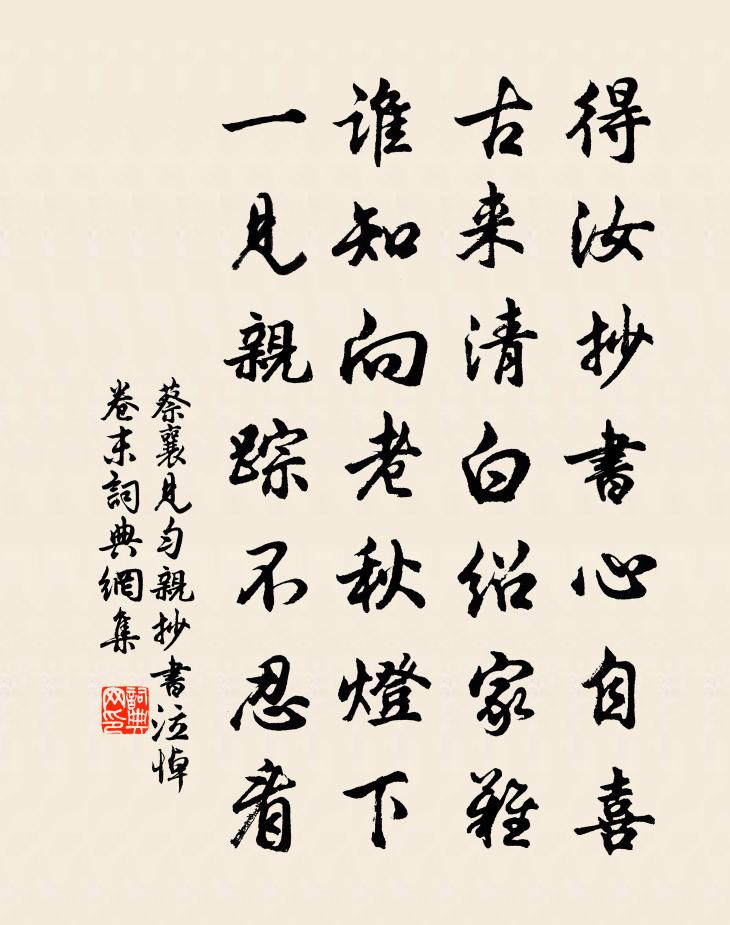 得汝抄書心自喜
古来清白紹家難
誰知向老秋燈下
一見親踪不忍看
蔡襄見勻親抄書泣悼
卷末詞典網集
詞典網印